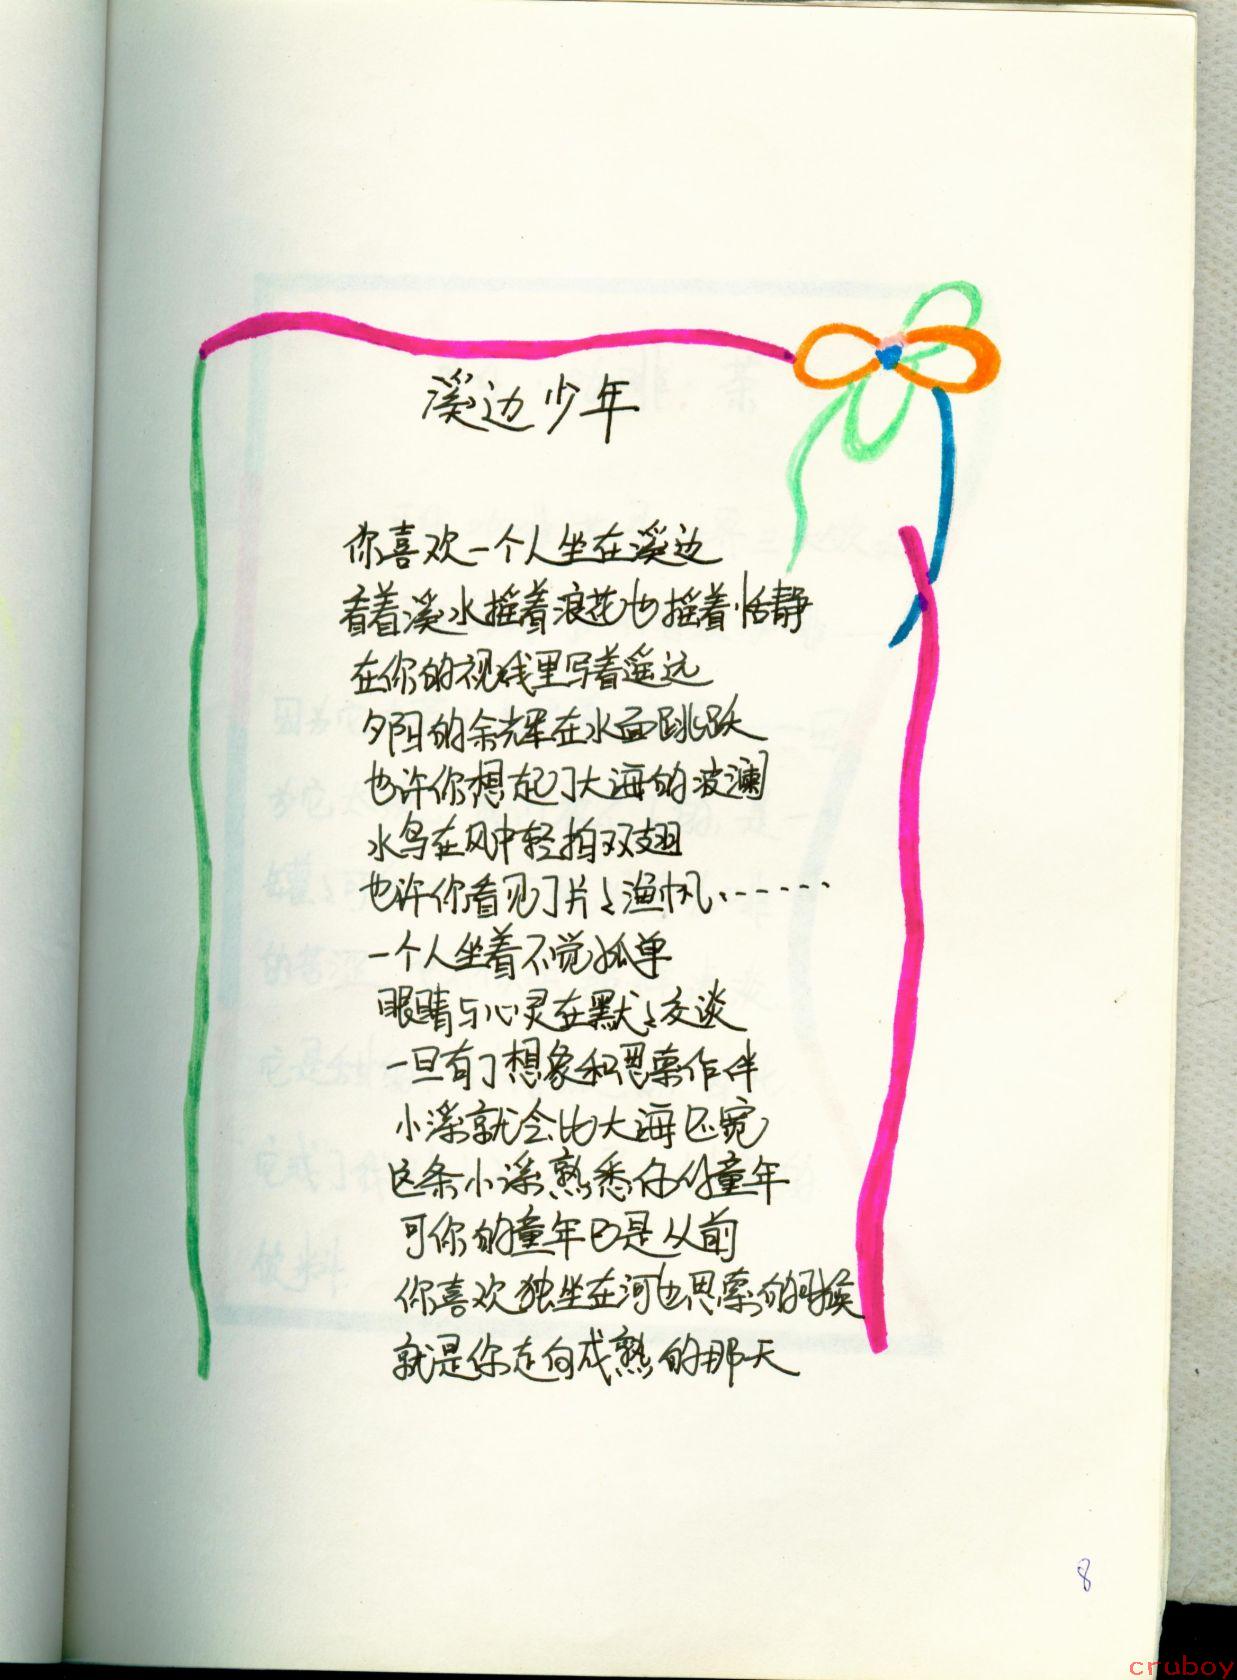 溪边少年
你喜欢一个人坐在溪边
看着溪水摇着浪花也摇着恬静
在你的视线里写着遥远
夕阳的余辉在水面跳跃
也许你想起了大海的波澜
水鸟在风中轻拍双翅
也许你看见了片々渔帆、……
一个人坐着不觉孤单
眼睛与心灵在默々交谈
一旦有了想象和思索作伴
小溪就会比大海还宽
这条小溪熟悉你的童年
可你的童年已是从前
你喜欢独坐在河边思索的时候
就是你走向成熟的那天
8
cruboy